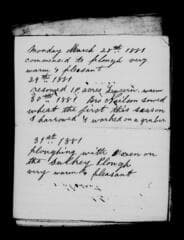 Monday March 28th 1881
commenced to plough very
warm & pleasant
29th 1881
resowed 12 acres warm
30th 1881 Bro Neilson sowed
wheat the first this season
I harrowed & worked on a grubber
31st 1881
ploughing with on
the Sulkey Plough
very warm & pleasant